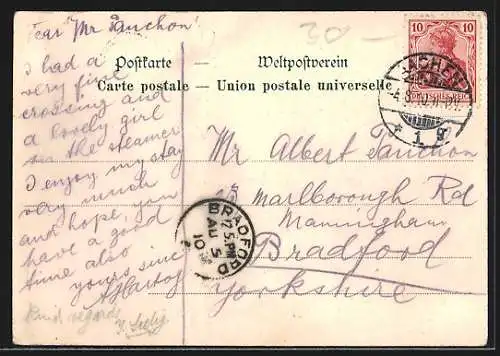 Dear Mr Tanchon!
I had a
very fine
crossing and
a lovely girl
on the steamer
I enjoy my stay
very much
and hope you
have a good
time also
yours sinc
Kind regards
30 —
Postkarte — Weltpostverein
Carte postale — Union postale universelle
10 10
DEUTSCHES REICH
AACHEN
1 g
Mr Albert Tanchon
Marlborough Rd
Manningham
Bradford
Yorkshire
BRADFORD
AU 5
10